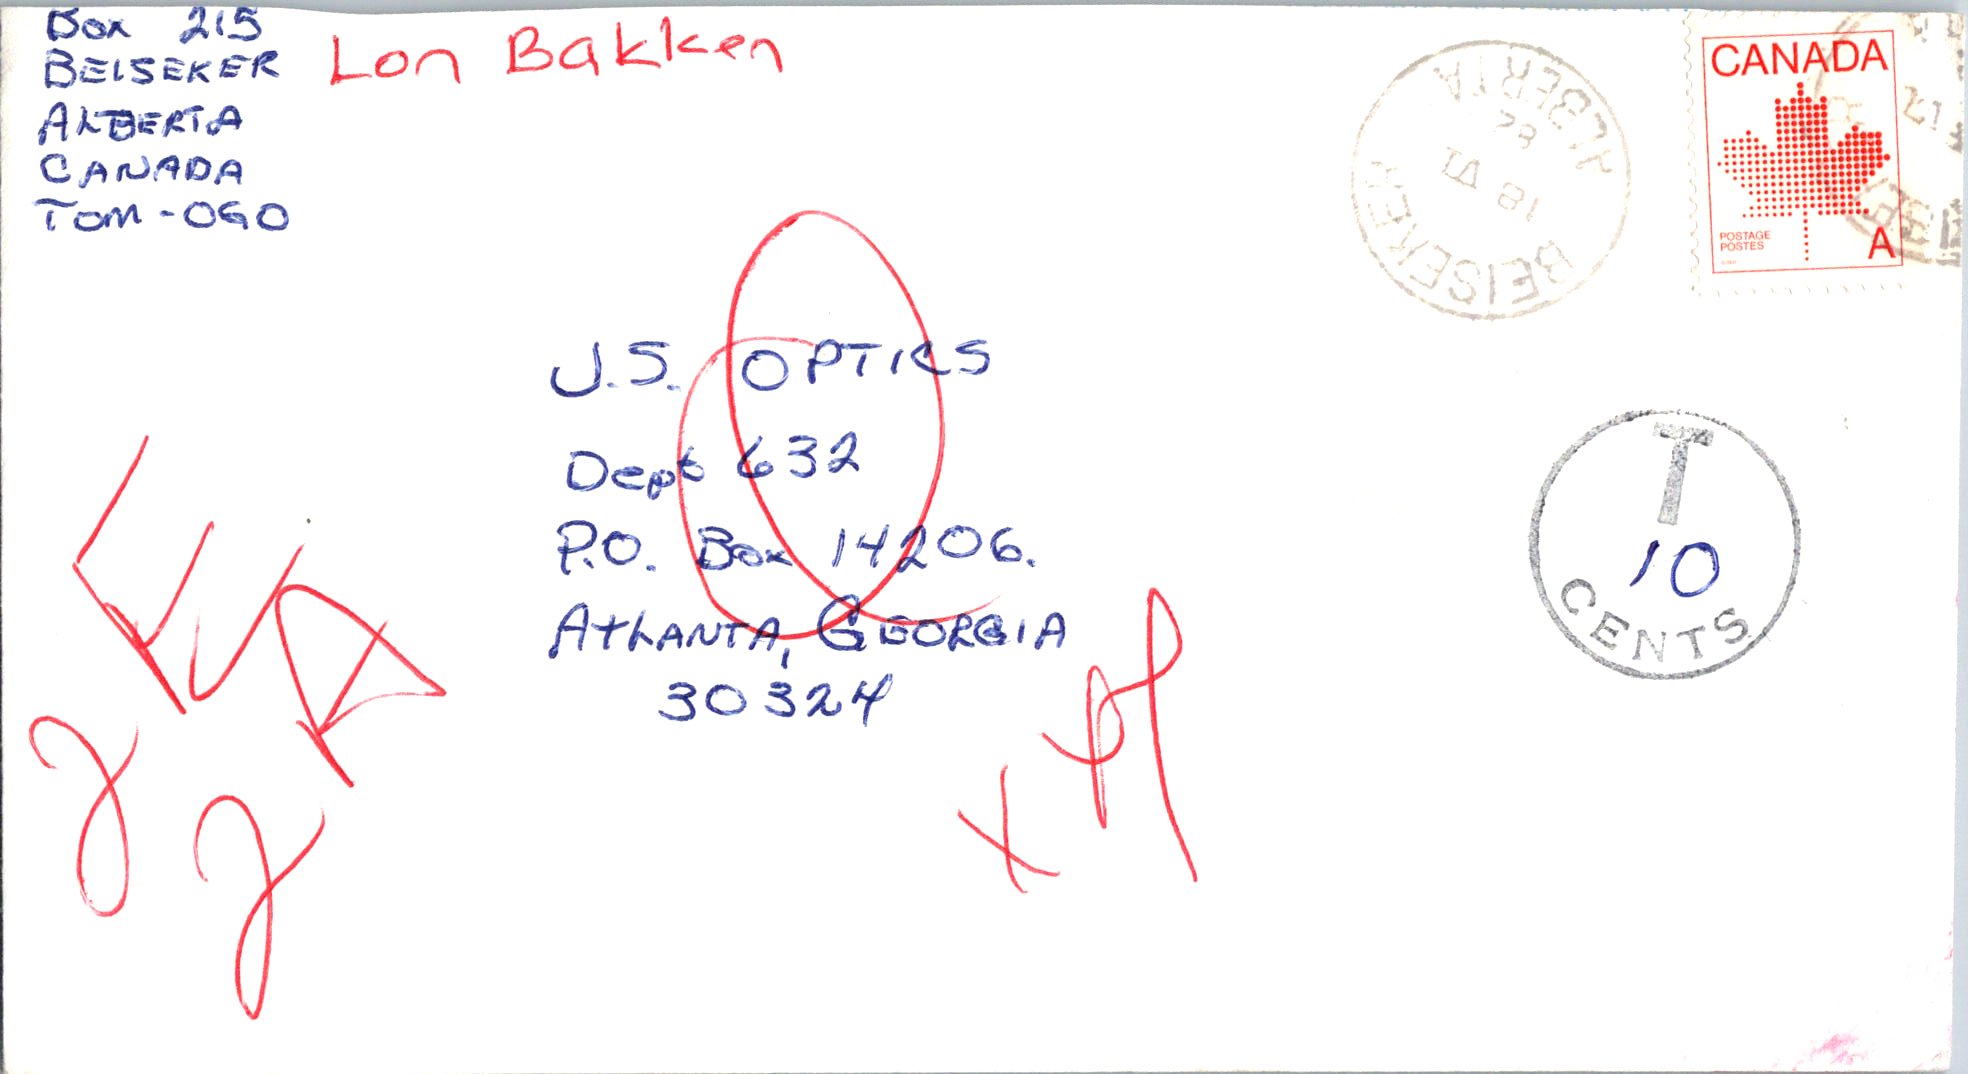 Box 215
BEISEKER
ALBERTA
CANADA
TOM-OGO
Lon Bakken
BEISEKER
ALBERTA
18 VI
82
CANADA
POSTAGE
POSTES
A
J.S. OPTICS
Dept 632
P.O. Box 14206.
ATLANTA, GEORGIA
30324
T
10
CENTS